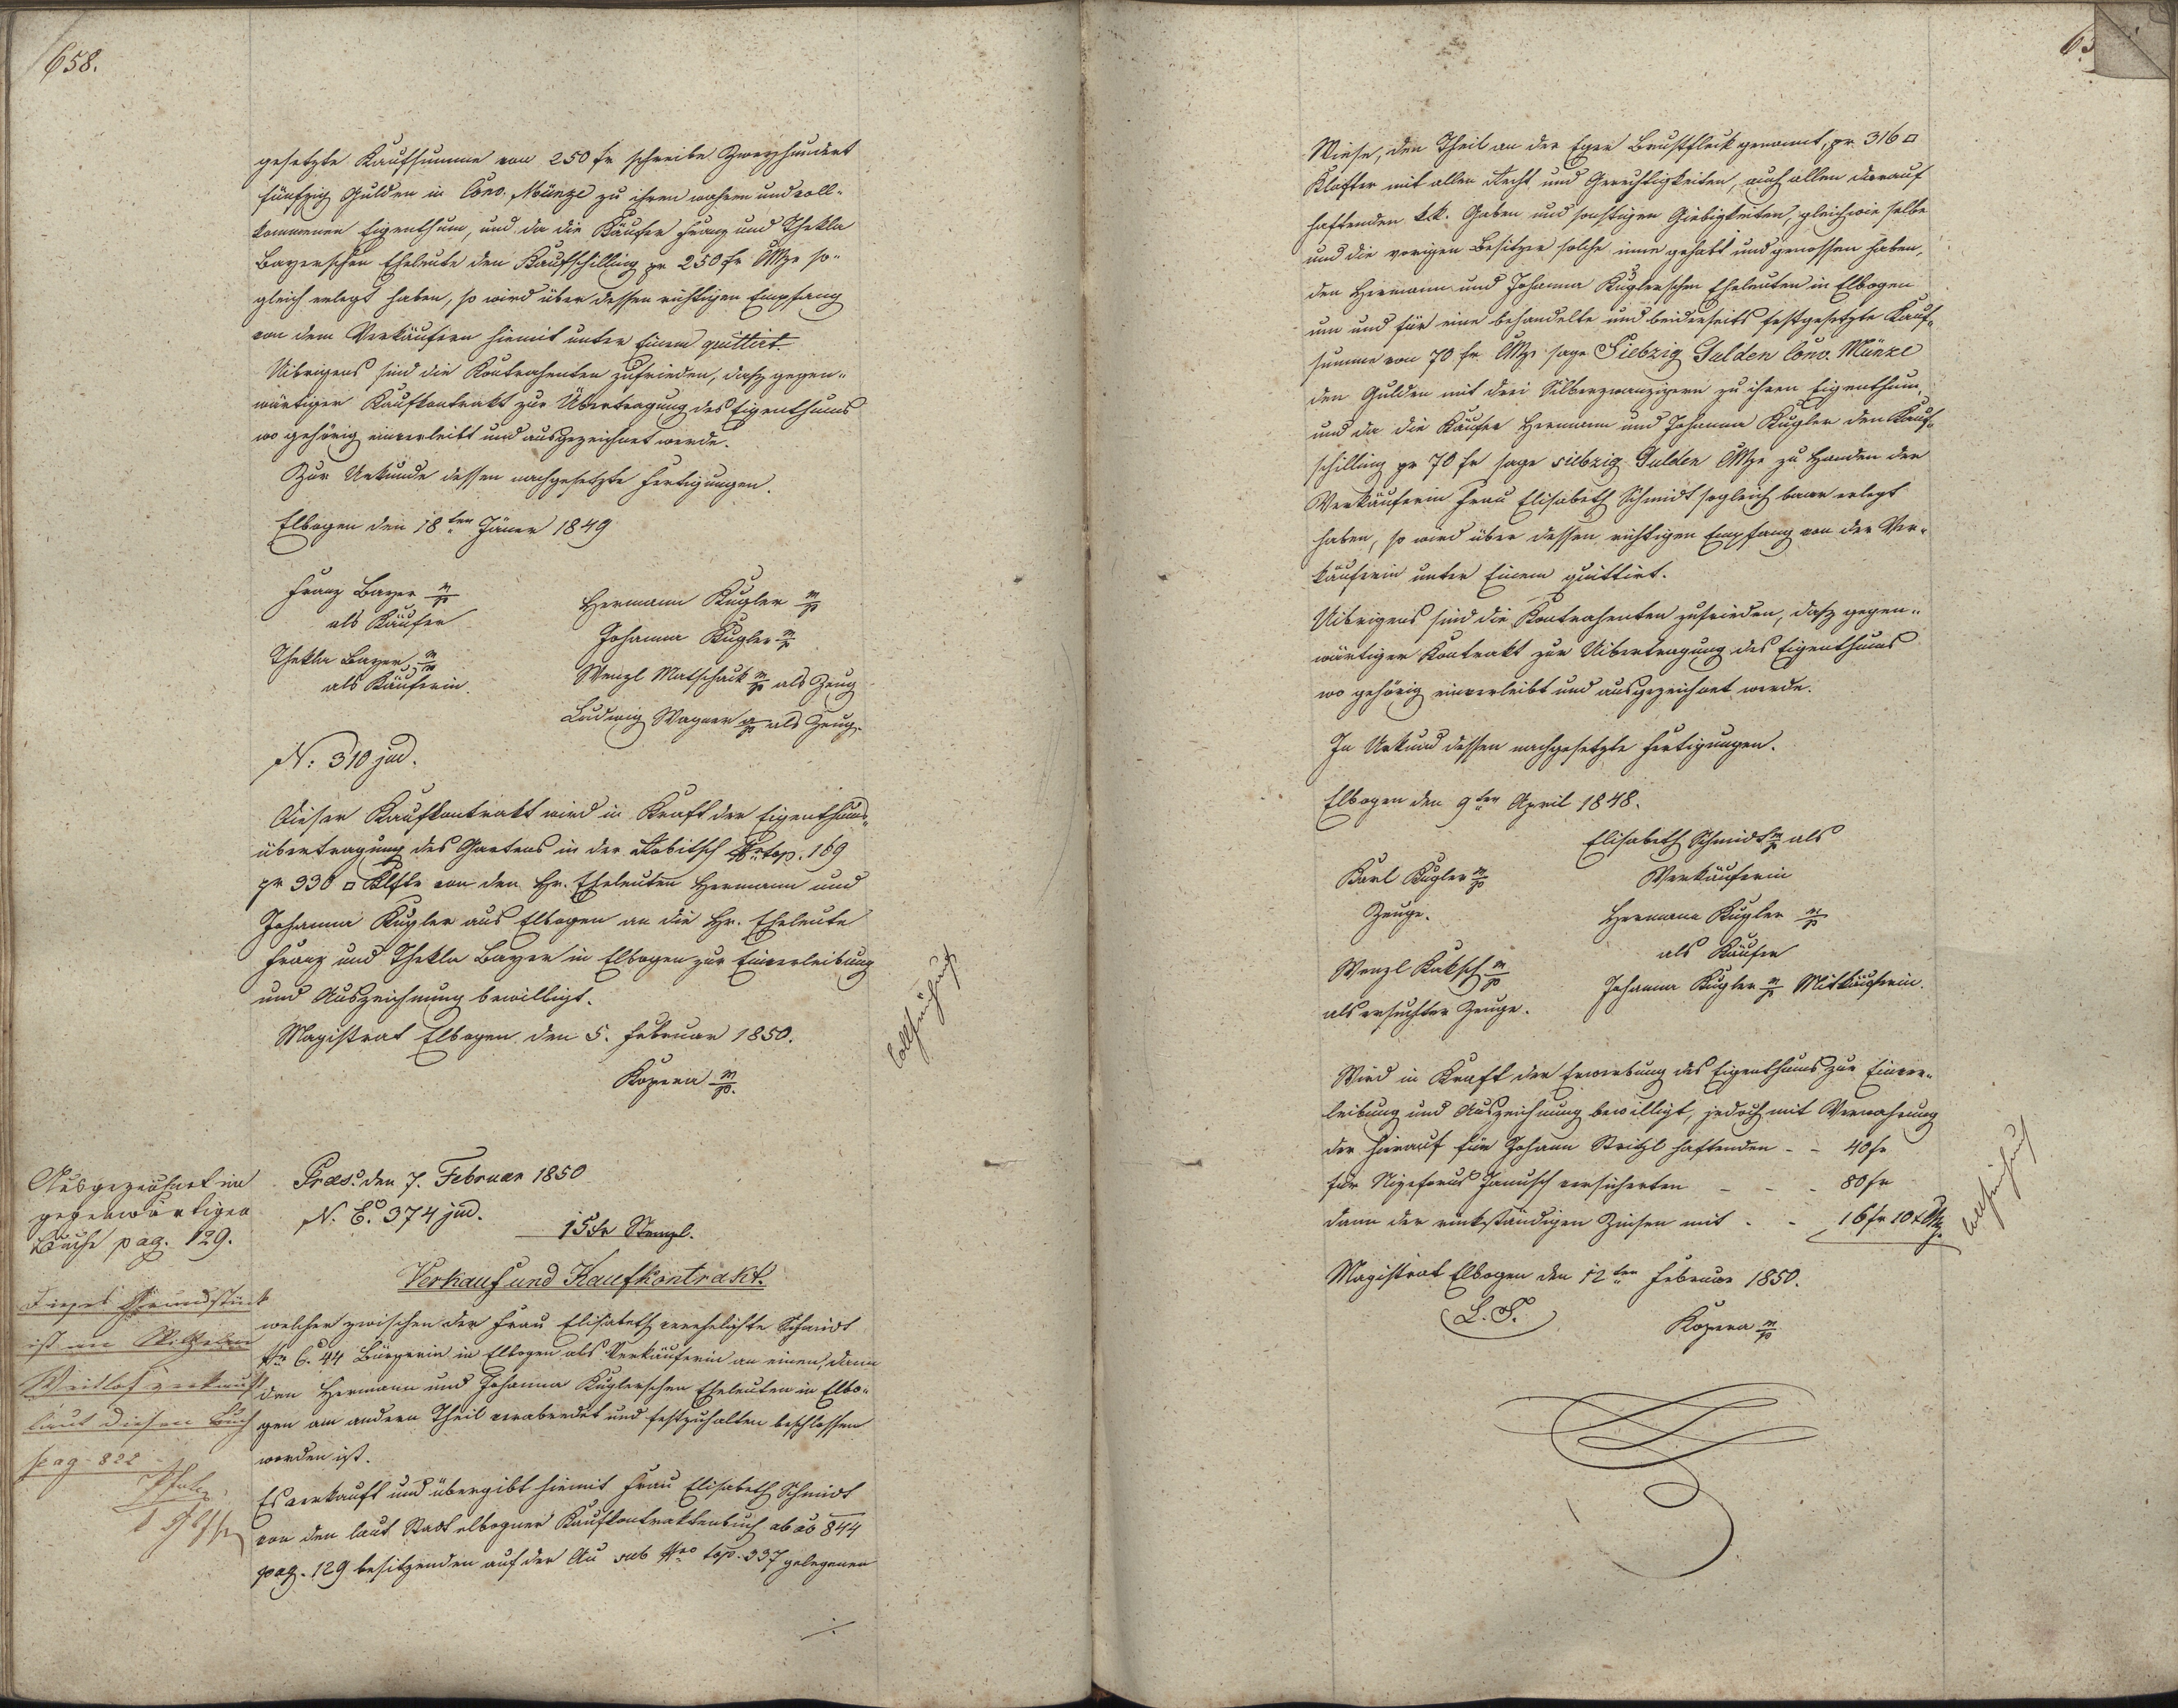 658.
gesetzte Kaufsumme von 250 fr schreibe Zweyhundert
fünfzig Gulden in Conv. Münze zu ihren wahren und voll-
kommenen Eigenthum, und da die Käufer Franz und Thekla
Bayerschen Eheleute den Kaufschilling pr 250 fr CMze so-
gleich erlegt haben, so wird über dessen richtigen Empfang
von dem Verkäufern hiemit unter Einem quittirt.
Uibrigens sind die Kontrahenten zufrieden, dasz gegen-
wärtiger Kaufkontrakt zur Übertragung des Eigenthums
wo gehörig einverleibt und ausgezeichnet werde.
Zur Urkunde dessen nachgesetzte Fertigungen.
Elbogen den 18ten Jäner 1849
Franz Bayer m/p
als Käufer
Thekla Bayer m/p
als Käuferin.
Hermann Kugler m/p
Johanna Kugler m/p
Wenzl Matschack m/p als Zeug
Ludwig Wagner m/p als Zeug.
N: 310 jud.
Dieser Kaufkontrakt wird in Kraft der Eigenthums-
übertragung des Gartens in der Robitsch Nr top. 169
pr 330 □ Klftr von den Hr. Eheleuten Hermann und
Johanna Kugler aus Elbogen an die Hr. Eheleute
Franz und Thekla Bayer in Elbogen zur Einverleibung
und Auszeichnung bewilligt.
Magistrat Elbogen den 5. Februar 1850.
Kopera m/p.
Ausgezeichnet im
gegenwärtigen
Buche pag. 129.
Dieses Grundstück
ist an Wilhelm
Weidlof verkauft
laut diesen Buch
pag. 822
Praes. den 7. Februar 1850
N. E. 374 jud.
15 kr Stempl.
Verkauf und Kaufkontrakt.
welcher zwischen der Frau Elisabeth verehelichte Schmidt
Nr C. 44 Bürgerin in Elbogen als Verkäuferin an einen, dann
den Hermann und Johanna Kuglerschen Eheleuten in Elbo-
gen am andern Theil verabredet und festzuhalten beschlossen
worden ist.
Es verkauft und übergibt hiemit Frau Elisabeth Schmidt
von den laut Stadt elbogner Kaufkontraktenbuch ab ao 844
pag. 129 besitzenden auf der Au sub Nro top. 337 gelegenen
./.
Wiese, den Theil an der Eger Brustfleck genannt, pr 316 □
Klafter mit allen Recht und Gerechtigkeiten, auch allen darauf
haftenden k.k. Gaben und sonstigen Giebigkeiten, gleichwie selbe
und die vorigen Besitzer solche inne gehabt und genossen haben,
den Hermann und Johanna Kuglerschen Eheleuten in Elbogen
um und für eine behandelte und beiderseits festgesetzte Kauf-
summe von 70 fr CMze sage Siebzig Gulden Conv. Münze
den Gulden mit drei Silberzwanzigern zu ihren Eigenthum,
und da die Käufer Hermann und Johanna Kugler den Kauf-
schilling pr 70 fr sage siebzig Gulden CMze zu Handen der
Verkäuferin Frau Elisabeth Schmidt sogleich baar erlegt
haben, so wird über dessen richtigen Empfang von der Ver-
käuferin unter Einem quittirt.
Uibrigens sind die Kontrahenten zufrieden, dasz gegen-
wärtiger Kontrakt zur Uibertragung des Eigenthums
wo gehörig einverleibt und ausgezeichnet werde.
In Urkund dessen nachgesetzte Fertigungen.
Elbogen den 9ten April 1848.
Karl Kugler m/p
Zeuge.
Wenzl m/p
als ersuchter Zeuge.
Elisabeth Schmidt m/p als
Verkäuferin
Hermann Kugler m/p
als Käufer
Johanna Kugler m/p Mitkäuferin.
Wird in Kraft der Erwerbung des Eigenthums zur Einver-
leibung und Auszeichnung bewilligt, jedoch mit Verwahrung
der hierauf für Johann haftenden - - 40 fr
für versicherten - - - 80 fr
dann der rückständigen Zinsen mit - - 16 fr 10 x CMz.
Magistrat Elbogen den 12ten Februar 1850.
(L. S.)
Kopera m/p